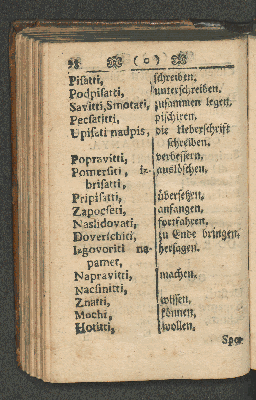 98 ( o )
Pisatti, schreiben.
Podpisatti, unterschreiben.
Savitti, Smotati, zusammen legen.
Pecsatitti, pischiren.
Upisati nadpis, die Ueberschrift
schreiben.
Popravitti, verbessern.
Pomersiti, iz- auslöschen.
brisatti,
Pripisatti, übersetzen.
Zapocseti, anfangen.
Naslidovati, fortfahren.
Doverschiti, zu Ende bringen.
Izgovoriti na- hersagen.
pamet,
Napravitti, machen.
Nacsinitti,
Znatti, wissen.
Mochi, können.
Hotitti, wollen.